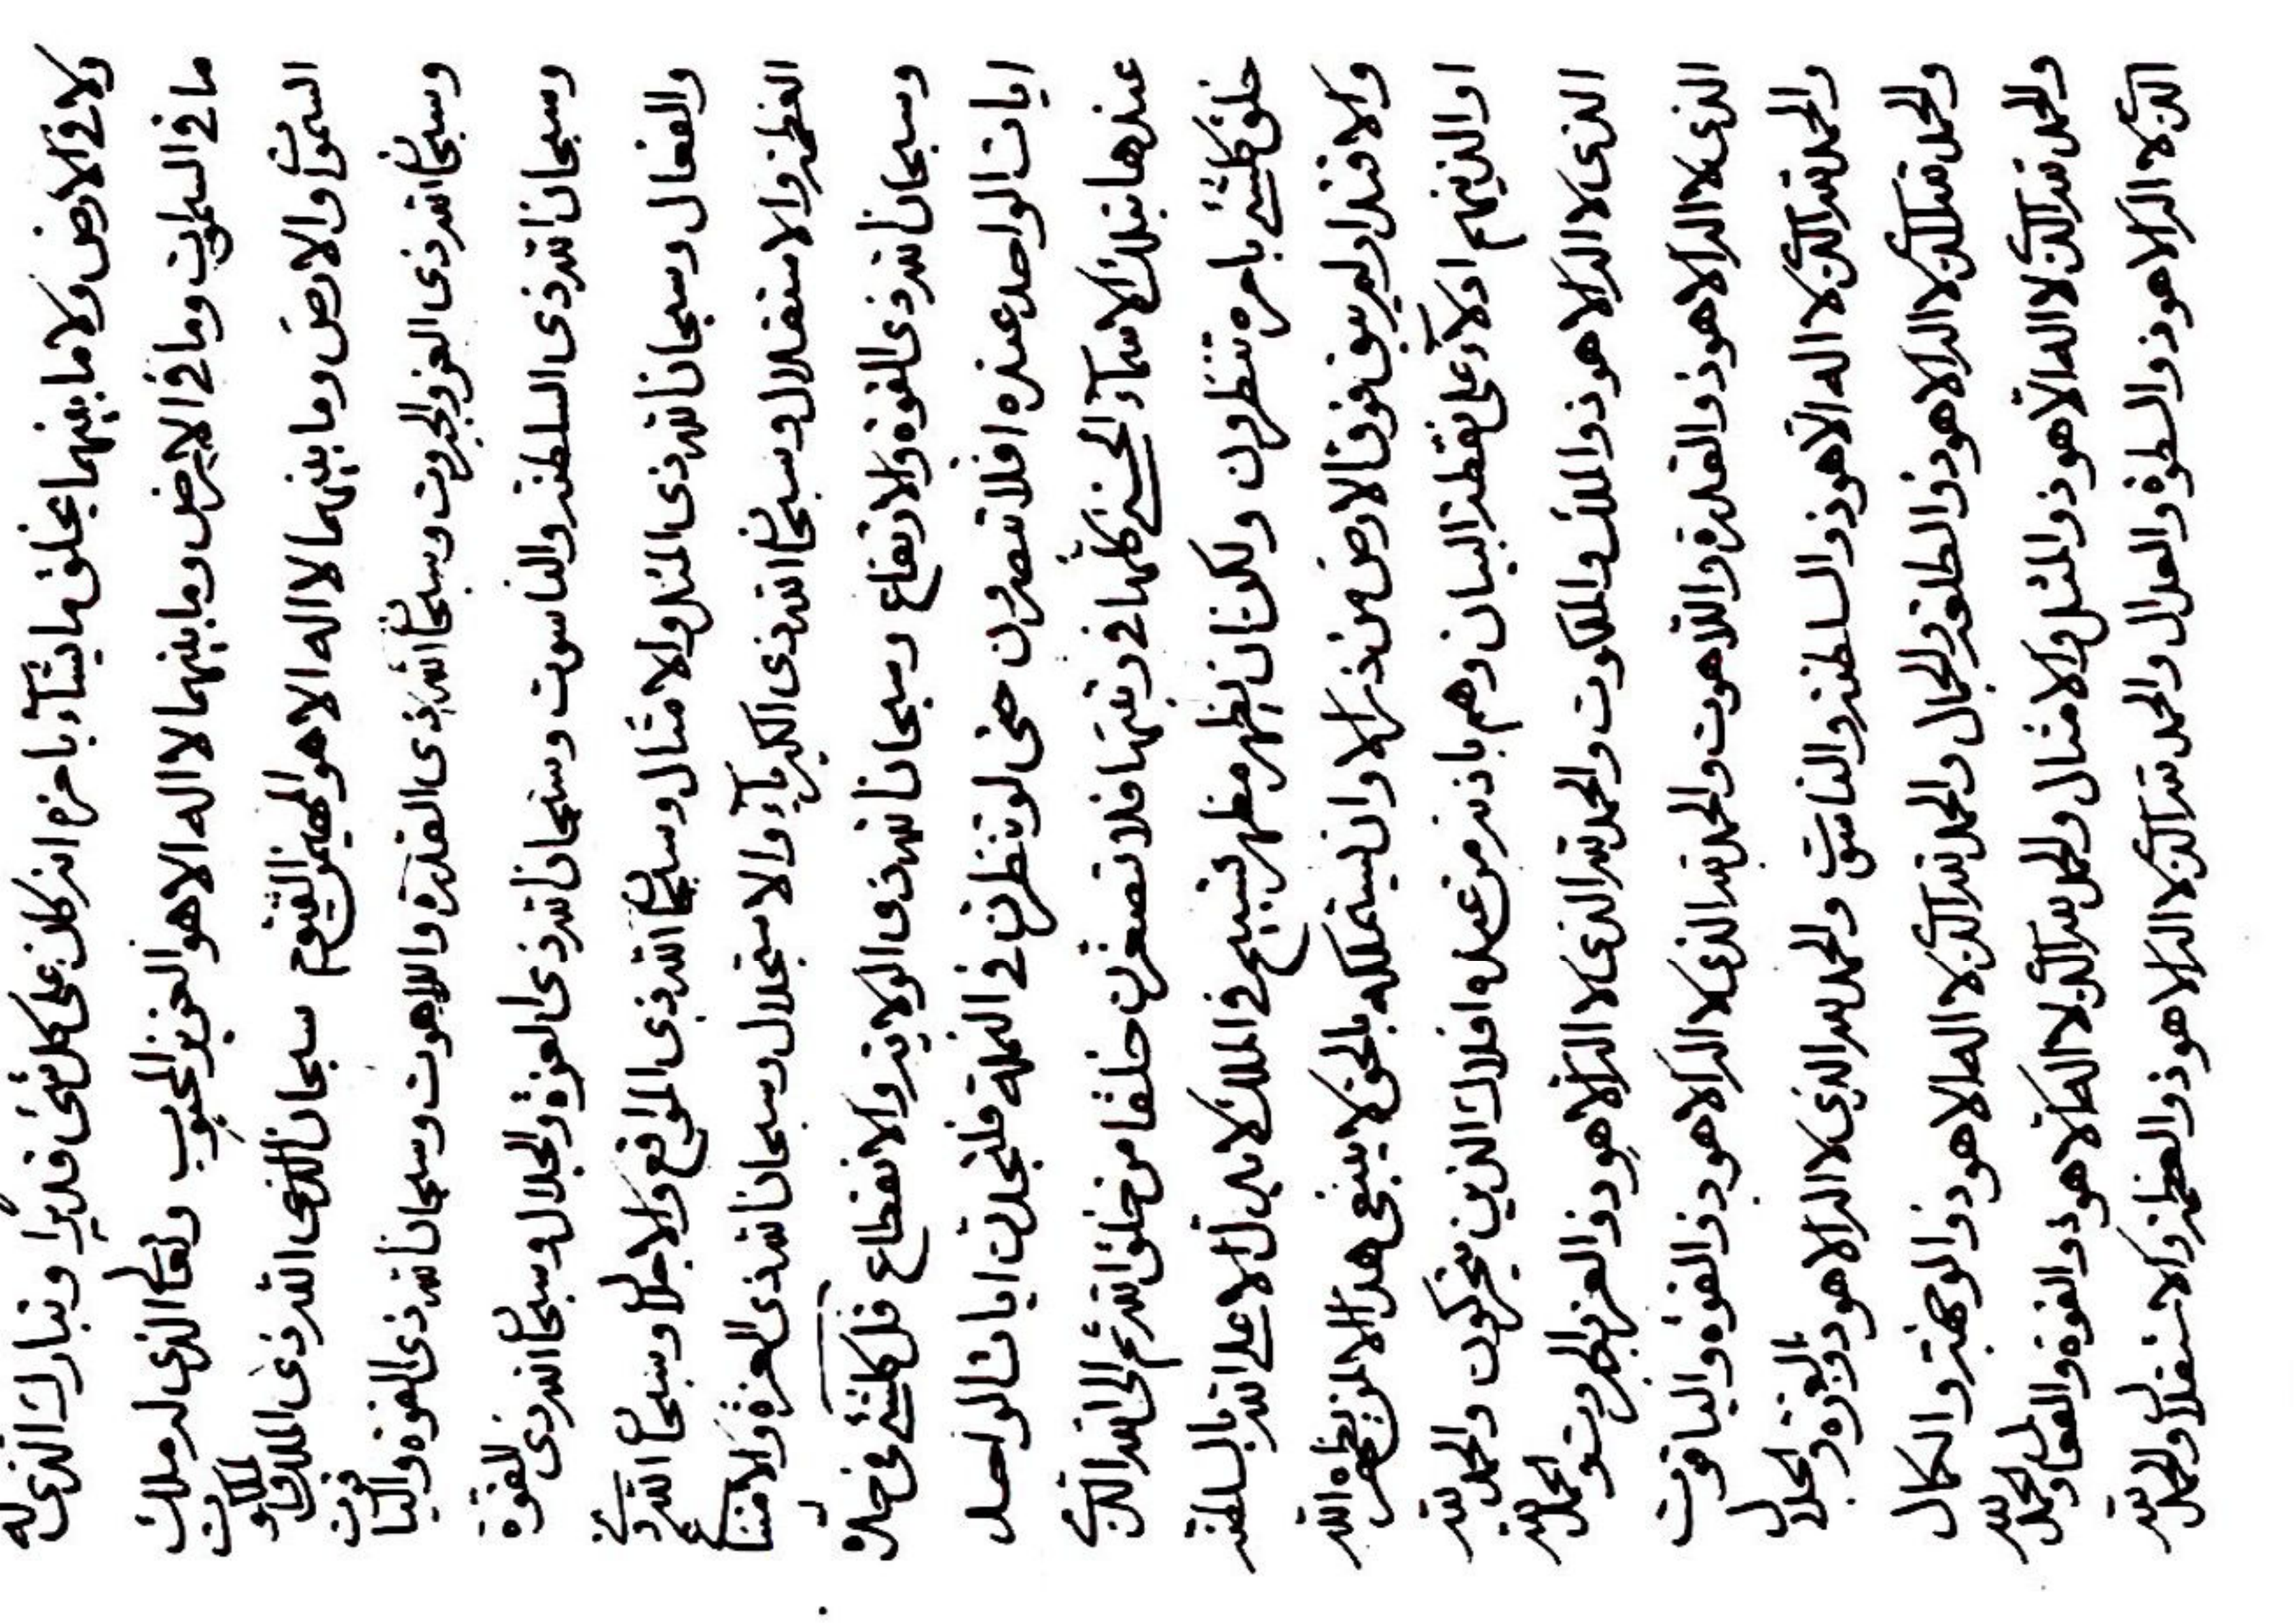 ولا فى الارض ولا ما بينهما يخلق ما يشآء بامره انه كان على كل شئ قديرا وتبارك الذى له
ما فى السموات وما فى الارض وما بينهما لا اله الا هو العزيز المحبوب وتعا الذى له ملك
السموا والارض وما بينهما لا اله الا هو المهيمن القيوم سبحان الله ذى الملك والملكوت
وسبحا الله ذى العز والجبروت وسبحا الله ذى القدرة واللاهوت وسبحان الله ذى القوة والياقوت
وسبحان الله ذى السلطنه والناسوت وسبحان الله ذى العزة والجلال وسبحا الله ذى القوة
والفعال وسبحان الله ذى المثل والامثال وسبحا الله ذى المواقع والاجلال وسبحا الله ذى
العظمه والاستقلال وسبحا الله ذى الكبريآء والاستجلال وسبحان الله ذى العزة والامتناع
وسبحان الله ذى القوة والارتفاع وسبحان الله ذى الولايه والانقطاع قل كلشئ فى
ايات الواحد عنده افلا تبصرون حتى لو تنظرن فى النملة فلتجدن ايات الواحد
عندها بتلك الاسمآء الحسنى كلها فى رتبتها فلا تصغرن خلقا من خلق الله ثم الى الله الذى
خلق كلشئ بامره تنظرون ولكن ان يظهر مظهر تسبيح فى الملك لا يدل الا على الله بالسلطنه
والاقتدار لم يبق فوق الارض من ذكر الا وان يستملكه بالحق لا ينبغى هذا الا لمن يظهره الله
او الذينهم ادلآء على نقطة البيان وهم باذنه من عنده افلاك الذين يتحركون والحمد لله
الذى لا اله الا هو ذو الملك والملكوت والحمد لله الذى لا اله الا هو ذو العز والجبروت والحمد لله
الذى لا اله الا هو ذو القدرة واللاهوت والحمد لله الذى لا اله الا هو ذو القوة والياقوت
والحمد لله الذى لا اله الا هو ذو السلطنه والناسوت والحمد لله الذى لا اله الا هو ذو العزة والجلال
والحمد لله الذى لا اله الا هو ذو الطلعة والجمال والحمد لله الذى لا اله الا هو ذو الوجهة والكمال
والحمد لله الذى لا اله الا هو ذو المثل والامثال والحمد لله الذى لا اله الا هو ذو القوة والفعال والحمد لله
الذى لا اله الا هو ذو السطوة والعدال والحمد لله الذى لا اله الا هو ذو العظمه والاستقلال والحمد لله